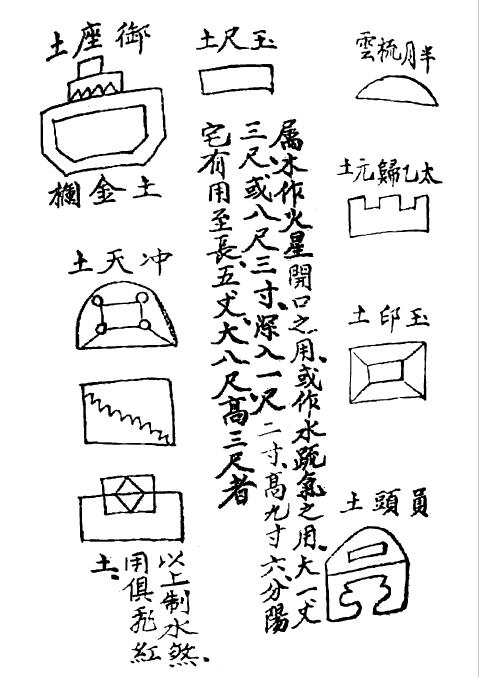 半月梳雲
太乙歸元土
玉印土
員頭土
玉尺土
属水作火星開口之用、或作水疏氣之用、大一丈
三尺或八尺三寸、深入一尺二寸、高九寸六分、陽
宅有用至長、五丈、大八尺高三尺者
御座土
土金欄
冲天土
以上制水煞、
用俱彤紅
土、